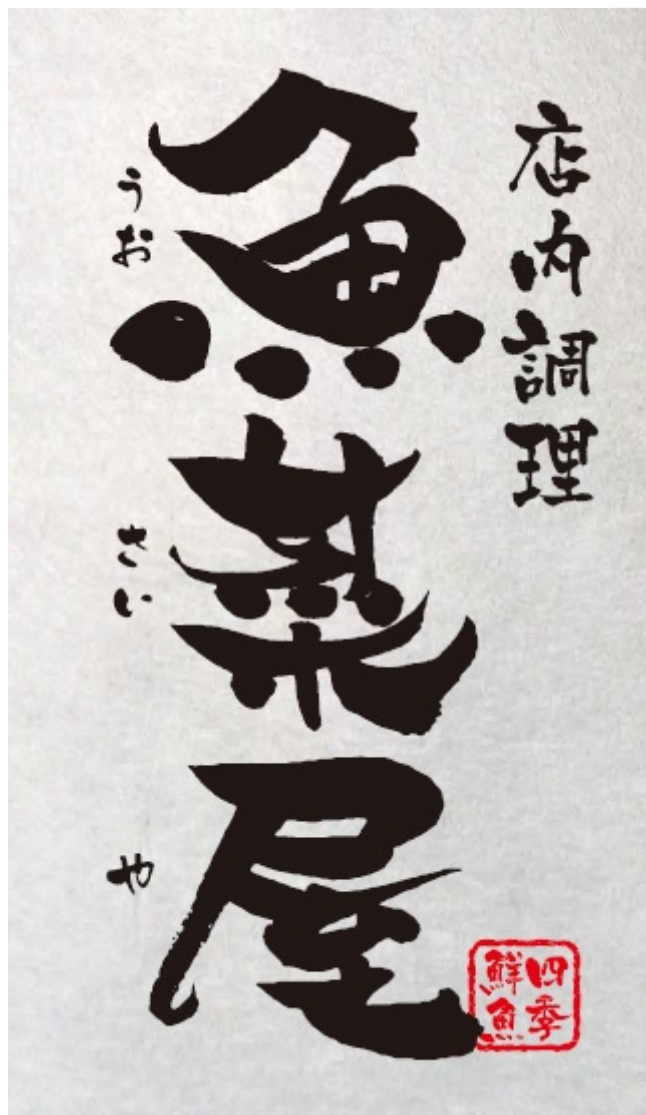 店内調理
魚菜屋
うおさいや
四季
鮮魚